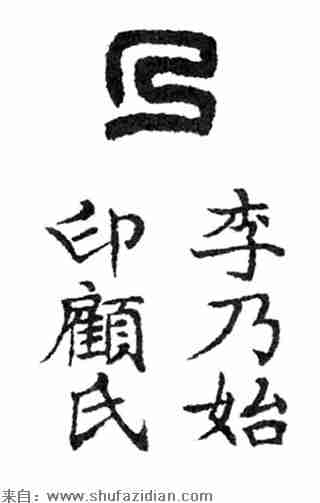 乃
李乃始
印顧氏
来自：www.shufazidian.com